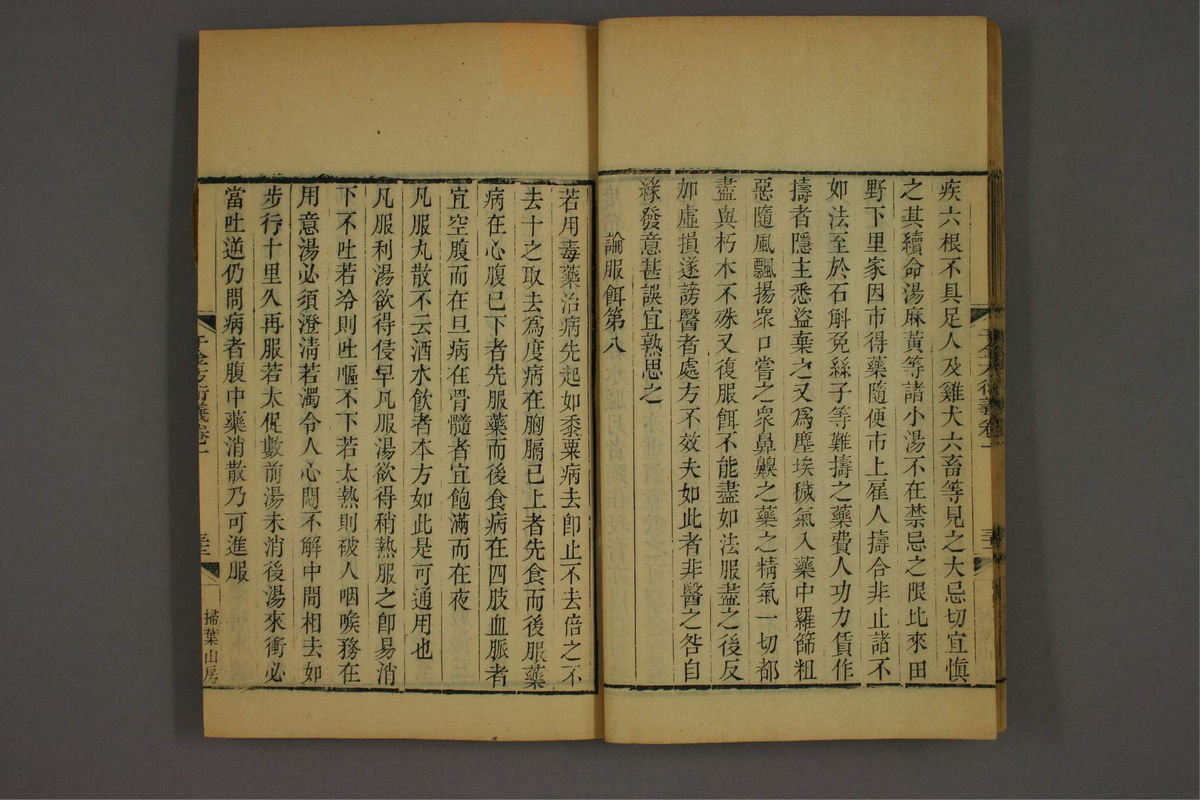 疾六根不具足人及雞犬六畜等見之大忌切宜慎
之其續命湯麻黃等諸小湯不在禁忌之限比來田
野下里家因市得藥隨便市上雇人擣合非止諸不
如法至於石斛兔絲子等難擣之藥費人功力賃作
擣者隱主悉盜棄之又爲塵埃穢氣入藥中羅篩粗
惡隨風飄揚衆口嘗之衆鼻齅之藥之精氣一切都
盡與朽木不殊又復服餌不能盡如法服盡之後反
加虛損遂謗醫者處方不效夫如此者非醫之咎自
緣發意甚誤宜熟思之
論服餌第八
若用毒藥治病先起如黍粟病去卽止不去倍之不
去十之取去爲度病在胸膈已上者先食而後服藥
病在心腹已下者先服藥而後食病在四肢血脈者
宜空腹而在旦病在骨髓者宜飽滿而在夜
凡服丸散不云酒水飲者本方如此是可通用也
凡服利湯欲得侵早凡服湯欲得稍熱服之卽易消
下不吐若冷則吐嘔不下若太熱則破人咽喉務在
用意湯必須澄清若濁令人心悶不解中閒相去如
步行十里久再服若太促數前湯未消後湯來衝必
當吐逆仍問病者腹中藥消散乃可進服
千金方衍義卷一
掃葉山房